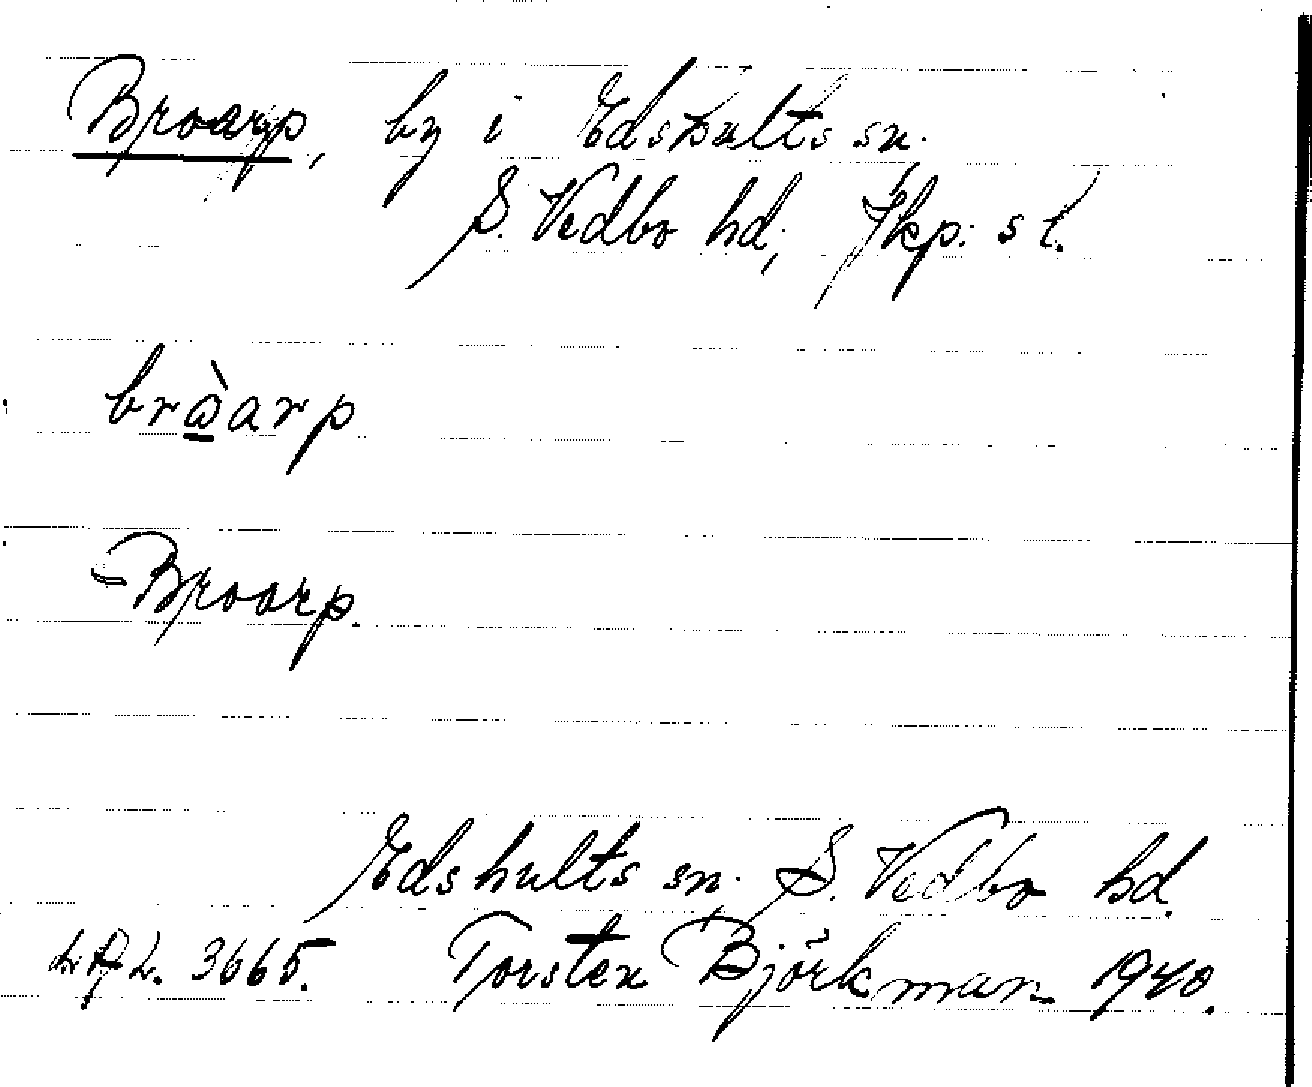 Broarp, by i Edshults sn.
S. Vedbo hd, Jkp: s l.
bròarp
Broarp.
Edshults sn. S. Vedbo hd.
3665. Torsten Björkman 1940.